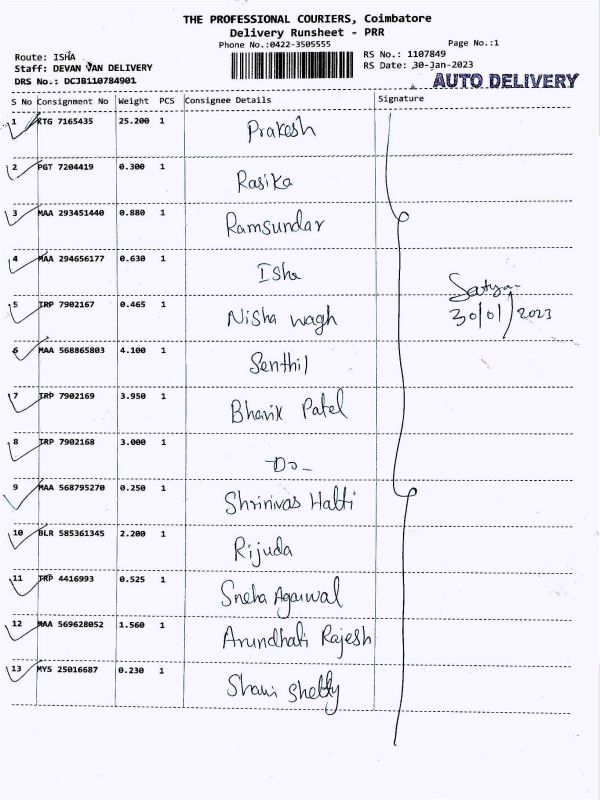 THE PROFESSIONAL COURIERS, Coimbatore
Delivery Runsheet - PRR
Phone No.:0422-3505555
Page No.:1
Route: ISHA
Staff: DEVAN VAN DELIVERY
DRS No.: DCJB110784901
RS No.: 1107849
RS Date: 30-Jan-2023
AUTO DELIVERY
S No Consignment No Weight PCS Consignee Details Signature
1 KTG 7165435 25.200 1 Prakash
2 PGT 7204419 0.300 1 Rasika
3 MAA 293451440 0.880 1 Ramsundar
4 MAA 294656177 0.630 1 Isha
Satya
5 TRP 7902167 0.465 1 Nisha wagh 30/01/2023
6 MAA 568865803 4.100 1 Senthil
7 TRP 7902169 3.950 1 Bhavik Patel
8 TRP 7902168 3.000 1 -Do-
9 MAA 568795270 0.250 1 Shrinivas Halti
10 BLR 585361345 2.200 1 Rijuda
11 TRP 4416993 0.525 1 Sneha Agarwal
12 MAA 569628052 1.560 1 Arundhati Rajesh
13 MYS 25016687 0.230 1 Shetty